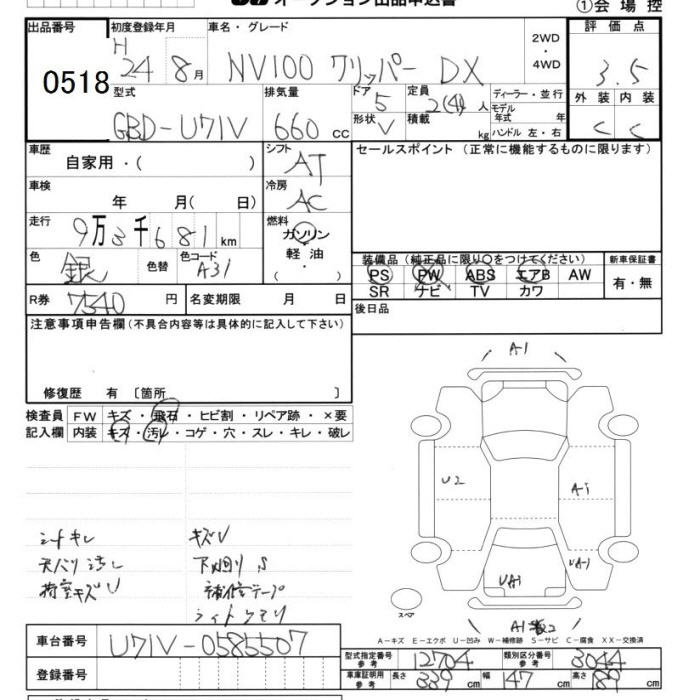 オークション出品申込書
①会場控
出品番号 0518
初度登録年月 H 24 8月
車名・グレード NV100 クリッパー DX
2WD・4WD
評価点 3.5
外装 C 内装 C
型式 GBD-U71V
排気量 660 cc
ドア 5
形状 V
定員 2(4)人
積載 kg
ディーラー・並行
モデル年式 年式
ハンドル 左・右
車歴 自家用・( )
シフト AT
セールスポイント (正常に機能するものに限ります)
車検 年 月( 日)
冷房 AC
走行 9万3千681km
燃料 ガソリン・軽油・( )
色 銀 色替 色コード A31
装備品 (純正品に限り○をつけてください)
PS PW ABS エアB AW
SR ナビ TV カワ
新車保証書 有・無
R券 7540 円
名変期限 月 日
後日品
注意事項申告欄 (不具合内容等は具体的に記入して下さい)
修復歴 有 〔箇所 〕
検査員記入欄
FW キズ・飛石・ヒビ割・リペア跡・×要
内装 キズ・汚レ・コゲ・穴・スレ・キレ・破レ
シートキレ
天バリ汚レ
荷室キズU
キズU
下廻り S
補修テープ
ライトクモリ
A1
U2
A-1
UA1
UA-1
スペア
A1
A-キズ E-エクボ U-凹み W-補修跡 S-サビ C-腐食 XX-交換済
車台番号 U71V-0585507
登録番号
型式指定番号 参考 12704
類別区分番号 参考 3044
車庫証明用 参考 長さ 339 cm 幅 147 cm 高さ 189 cm